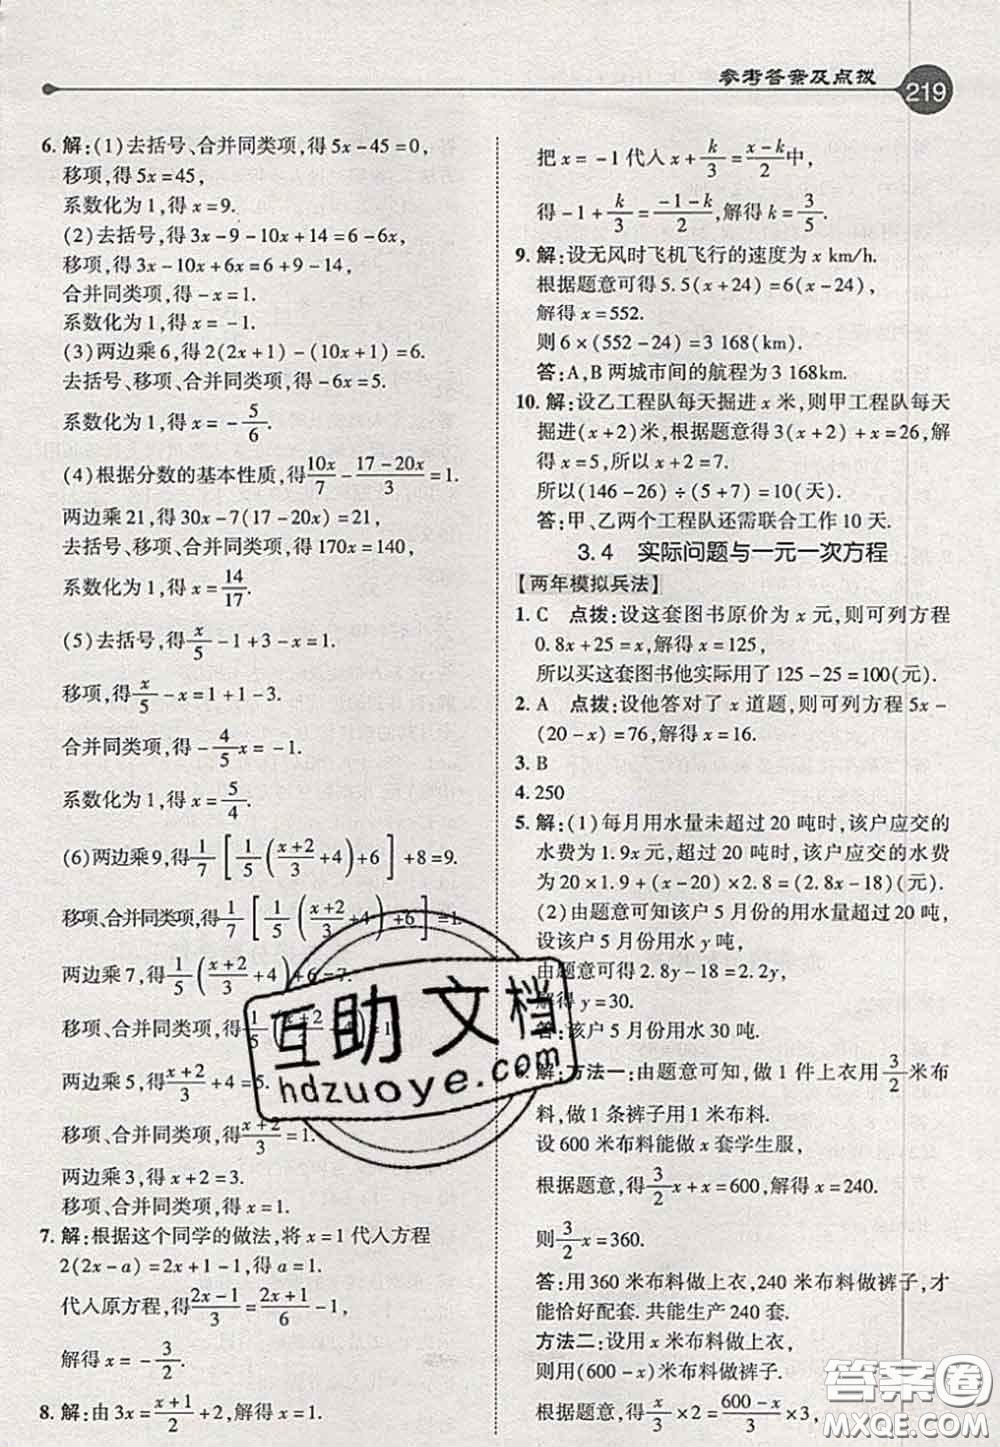 参考答案及点拨
219
6. 解:(1)去括号、合并同类项,得 5x-45=0,
移项,得 5x=45,
系数化为 1,得 x=9.
(2)去括号,得 3x-9-10x+14=6-6x,
移项,得 3x-10x+6x=6+9-14,
合并同类项,得 -x=1.
系数化为 1,得 x=-1.
(3)两边乘 6,得 2(2x+1)-(10x+1)=6.
去括号、移项、合并同类项,得 -6x=5.
系数化为 1,得 x=-5/6.
(4)根据分数的基本性质,得 10x/7-(17-20x)/3=1.
两边乘 21,得 30x-7(17-20x)=21,
去括号、移项、合并同类项,得 170x=140,
系数化为 1,得 x=14/17.
(5)去括号,得 x/5-1+3-x=1.
移项,得 x/5-x=1+1-3.
合并同类项,得 -4/5x=-1.
系数化为 1,得 x=5/4.
(6)两边乘 9,得 1/7[1/5((x+2)/3+4)+6]+8=9.
移项、合并同类项,得 1/7[1/5((x+2)/3+4)+6]=1.
两边乘 7,得 1/5((x+2)/3+4)+6=7.
移项、合并同类项,得 1/5((x+2)/3+4)=1
两边乘 5,得 (x+2)/3+4=5.
移项、合并同类项,得 (x+2)/3=1.
两边乘 3,得 x+2=3.
移项、合并同类项,得 x=1.
7. 解:根据这个同学的做法,将 x=1 代入方程
2(2x-a)=2x+1-1,得 a=1.
代入原方程,得 (2x-1)/3=(2x+1)/6-1,
解得 x=-3/2.
8. 解:由 3x=(x+1)/2+2,解得 x=1.
把 x=-1 代入 x+k/3=(x-k)/2 中,
得 -1+k/3=(-1-k)/2,解得 k=3/5.
9. 解:设无风时飞机飞行的速度为 x km/h.
根据题意可得 5.5(x+24)=6(x-24),
解得 x=552.
则 6×(552-24)=3 168(km).
答:A,B 两城市间的航程为 3 168km.
10. 解:设乙工程队每天掘进 x 米,则甲工程队每天
掘进(x+2)米,根据题意得 3(x+2)+x=26,解
得 x=5,所以 x+2=7.
所以(146-26)÷(5+7)=10(天).
答:甲、乙两个工程队还需联合工作 10 天.
3.4 实际问题与一元一次方程
【两年模拟兵法】
1. C 点拨:设这套图书原价为 x 元,则可列方程
0.8x+25=x,解得 x=125,
所以买这套图书他实际用了 125-25=100(元).
2. A 点拨:设他答对了 x 道题,则可列方程 5x-
(20-x)=76,解得 x=16.
3. B
4. 250
5. 解:(1)每月用水量未超过 20 吨时,该户应交的
水费为 1.9x 元,超过 20 吨时,该户应交的水费
为 20×1.9+(x-20)×2.8=(2.8x-18)(元).
(2)由题意可知该户 5 月份的用水量超过 20 吨,
设该户 5 月份用水 y 吨,
由题意可得 2.8y-18=2.2y,
解得 y=30.
答:该户 5 月份用水 30 吨.
6. 解:方法一:由题意可知,做 1 件上衣用 3/2 米布
料,做 1 条裤子用 1 米布料.
设 600 米布料能做 x 套学生服,
根据题意,得 3/2x+x=600,解得 x=240.
则 3/2x=360.
答:用 360 米布料做上衣,240 米布料做裤子,才
能恰好配套. 共能生产 240 套.
方法二:设用 x 米布料做上衣,
则用(600-x)米布料做裤子.
根据题意,得 x/3×2=(600-x)/3×3,
互助文档
hdzuoye.com
答案圈
MXQE.COM